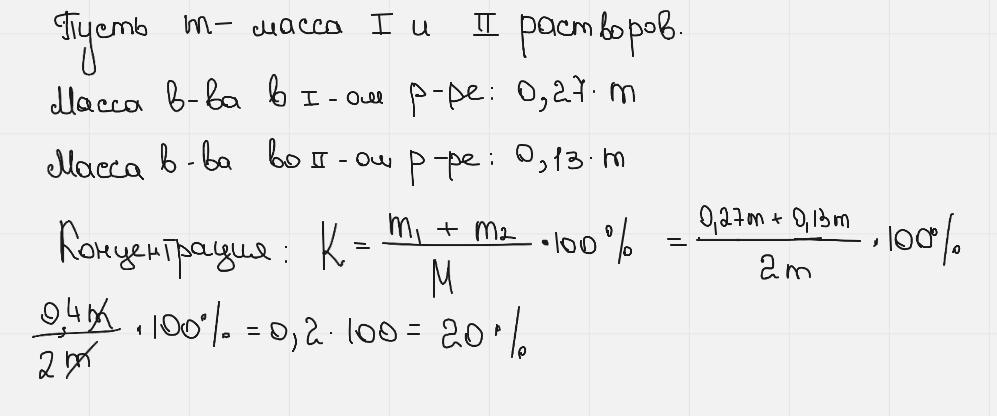 Пусть m - масса I и II растворов.
Масса в-ва в I-ом р-ре: 0,27·m
Масса в-ва во II-ом р-ре: 0,13·m
Концентрация: K = (m₁ + m₂)/M ·100% = (0,27m + 0,13m)/2m ·100%
0,4m/2m ·100% = 0,2·100 = 20%